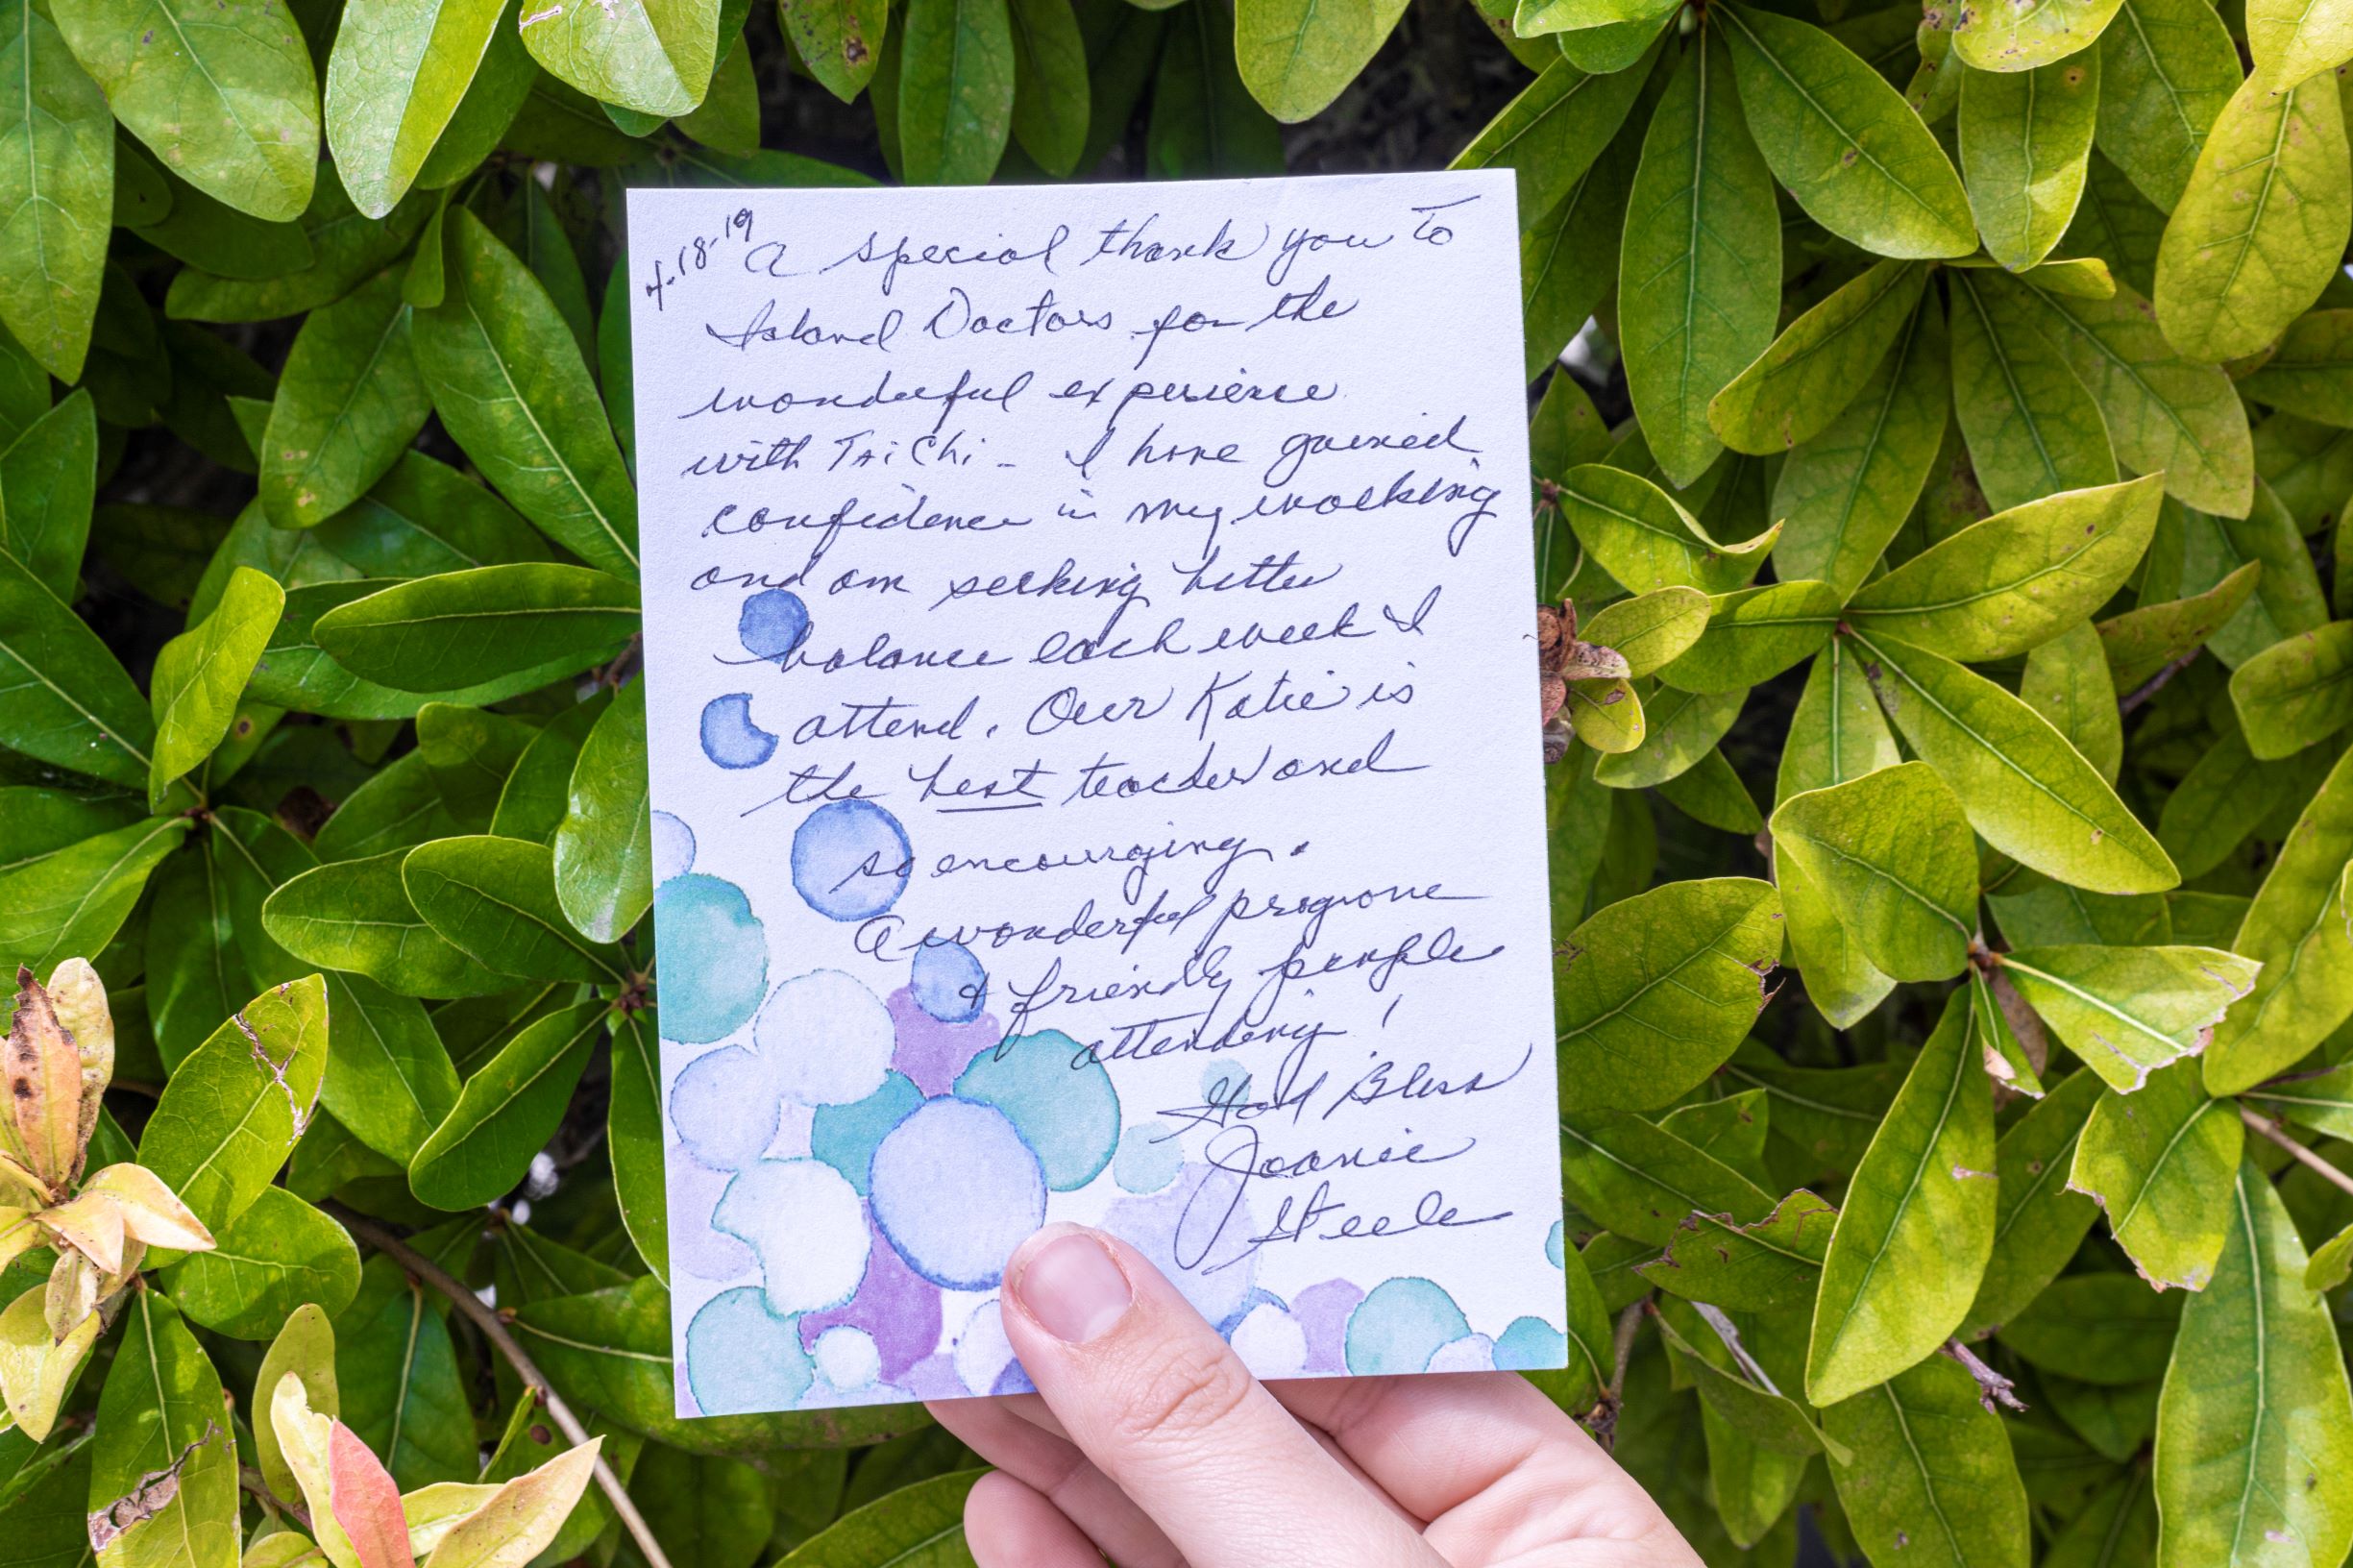 4-18-19
A special thank you To
Island Doctors for the
wonderful experience
with Tai Chi - I have gained
confidence in my walking
and am seeking better
balance each week I
attend. Our Katie is
the best teacher and
so encouraging.
A wonderful program
& friendly people
attending!
God Bless
Joanie
Steele